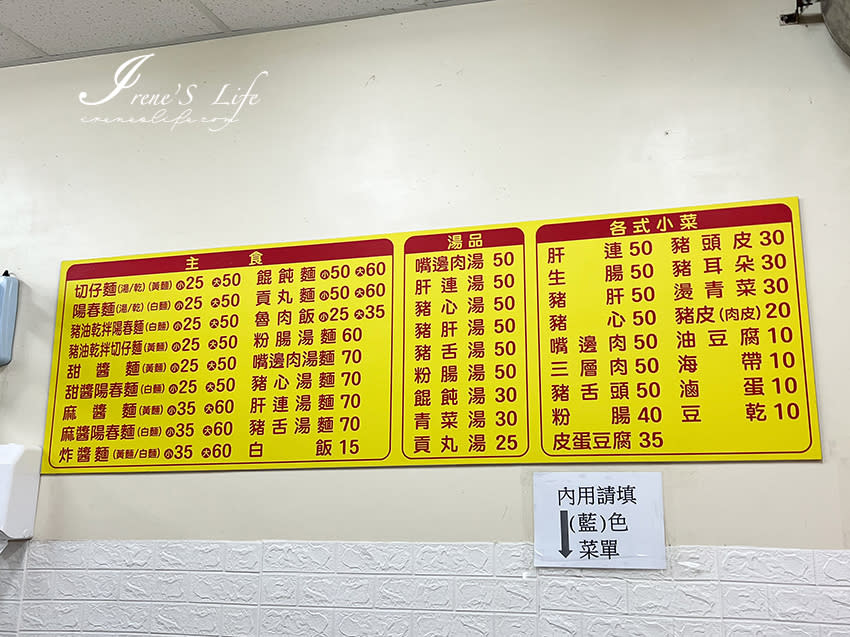 Irene'S Life
ireneslife.com
主食
切仔麵(湯/乾)(黃麵) 小25 大50
陽春麵(湯/乾)(白麵) 小25 大50
豬油乾拌陽春麵(白麵) 小25 大50
豬油乾拌切仔麵(黃麵) 小25 大50
甜醬麵(黃麵) 小25 大50
甜醬陽春麵(白麵) 小25 大50
麻醬麵(黃麵) 小35 大60
麻醬陽春麵(白麵) 小35 大60
炸醬麵(黃麵/白麵) 小35 大60
餛飩麵 小50 大60
貢丸麵 小50 大60
魯肉飯 小25 大35
粉腸湯麵 60
嘴邊肉湯麵 70
豬心湯麵 70
肝連湯麵 70
豬舌湯麵 70
白飯 15
湯品
嘴邊肉湯 50
肝連湯 50
豬心湯 50
豬肝湯 50
豬舌湯 50
粉腸湯 50
餛飩湯 30
青菜湯 30
貢丸湯 25
各式小菜
肝連 50
生腸 50
豬肝 50
豬心 50
嘴邊肉 50
三層肉 50
豬舌頭 50
粉腸 40
皮蛋豆腐 35
豬頭皮 30
豬耳朵 30
燙青菜 30
豬皮(肉皮) 20
油豆腐 10
海帶 10
滷蛋 10
豆乾 10
內用請填
(藍)色
菜單